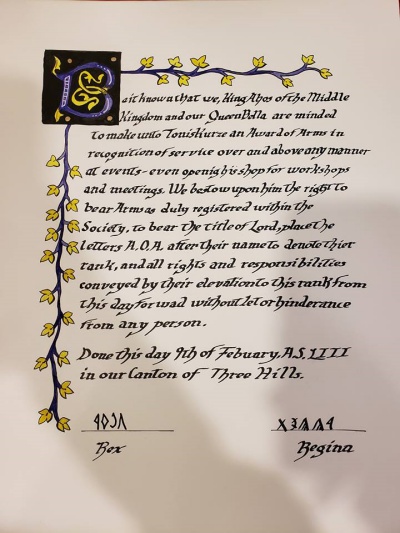 Be it known that we, King Ahos of the Middle
Kingdom and our Queen Polla are minded
to make unto Toniskurze an Award of Arms in
recognition of service over and above any manner
at events - even openig his shop for workshops
and meetings. We bestow upon him the right to
bear Arms as duly registered within the
Society, to bear the title of Lord, place the
letters A.O.A. after their name to denote thier
rank, and all rights and responsibilities
conveyed by their elevation to this rank from
this day forwad without let or hinderance
from any person.
Done this day 9th of Febuary, A.S. LIII
in our Canton of Three Hills.
Rex Regina